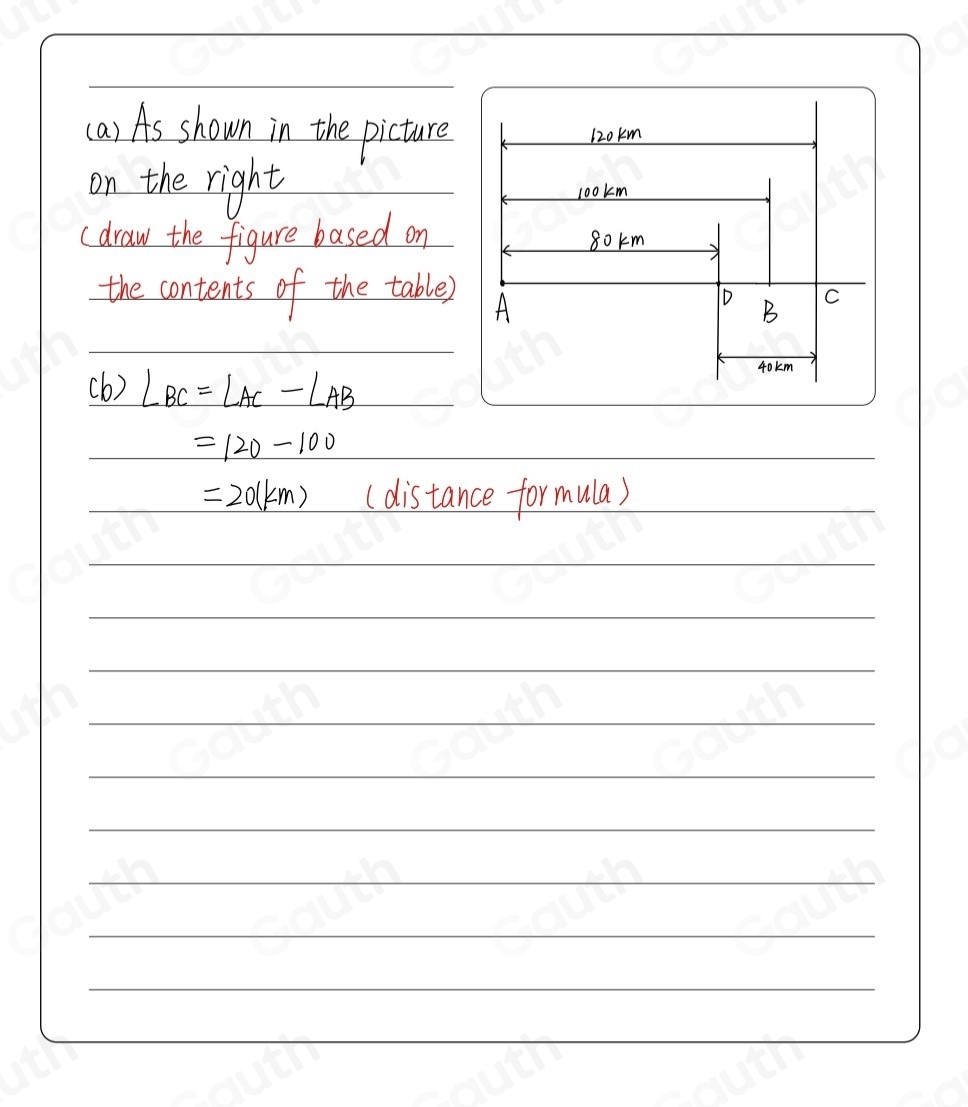 (a) As shown in the picture
on the right
(draw the figure based on
the contents of the table)
120 km
100 km
80 km
A
D
B
C
40 km
(b) LBC = LAC - LAB
= 120 - 100
= 20(km) (distance formula)
Gauth